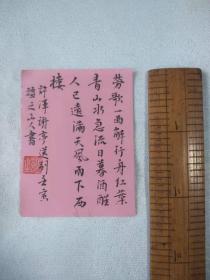 勞歌一曲解行舟红葉
青山水急流日暮酒醒
人已遠滿天風雨下西
樓
許渾謝亭送别壬寅
山人書